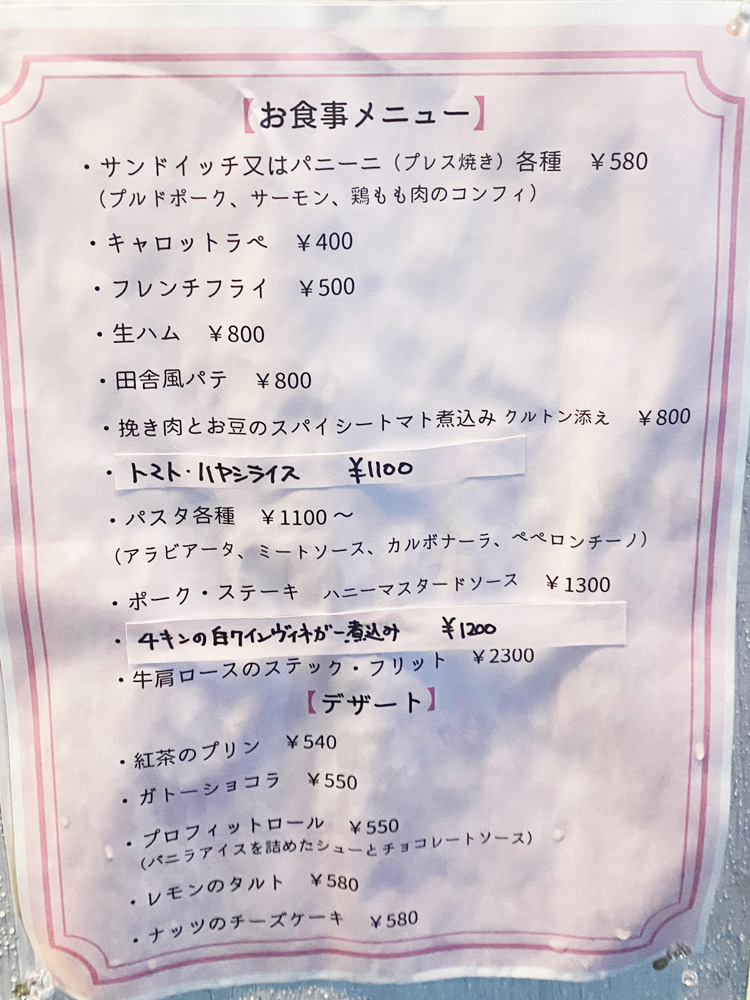 【お食事メニュー】
・サンドイッチ又はパニーニ（プレス焼き）各種　￥580
（プルドポーク、サーモン、鶏もも肉のコンフィ）
・キャロットラペ　￥400
・フレンチフライ　￥500
・生ハム　￥800
・田舎風パテ　￥800
・挽き肉とお豆のスパイシートマト煮込み クルトン添え　￥800
・トマト・ハヤシライス　￥1100
・パスタ各種　￥1100～
（アラビアータ、ミートソース、カルボナーラ、ペペロンチーノ）
・ポーク・ステーキ　ハニーマスタードソース　￥1300
・チキンの白ワインヴィネガー煮込み　￥1200
・牛肩ロースのステック・フリット　￥2300
【デザート】
・紅茶のプリン　￥540
・ガトーショコラ　￥550
・プロフィットロール　￥550
（バニラアイスを詰めたシューとチョコレートソース）
・レモンのタルト　￥580
・ナッツのチーズケーキ　￥580